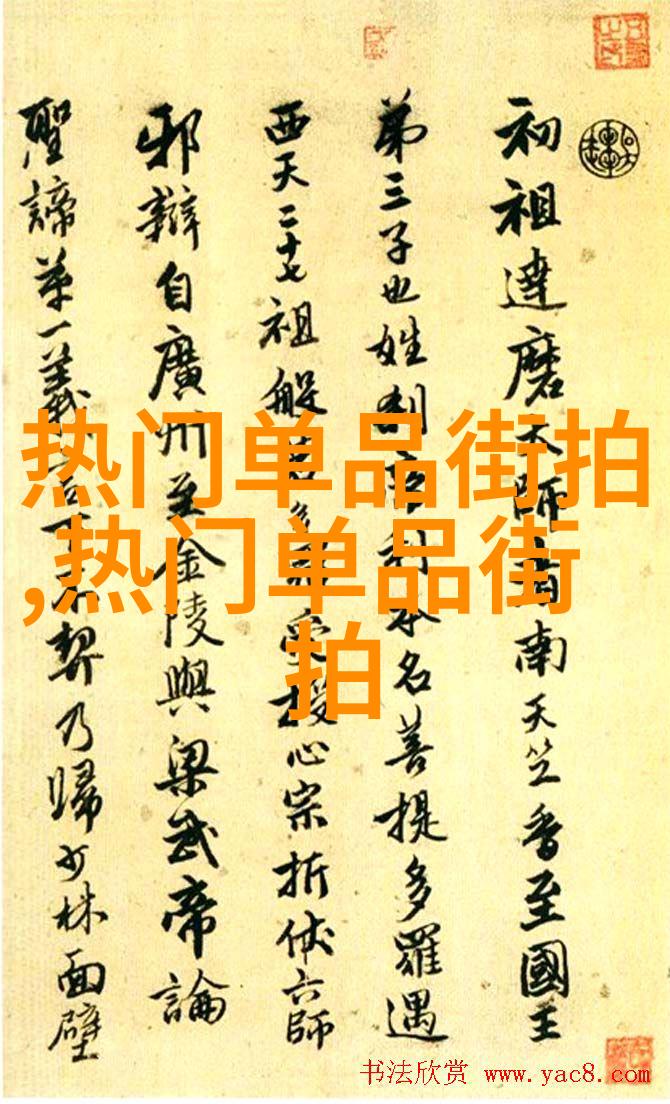 初祖達磨大師者南天竺香至國王
第三子也姓刹帝利本名菩提多羅遇
西天二十七祖般若多羅受授心宗折伏六師
邪辯自廣州至金陵與梁武帝論
聖諦第一義言下不契乃歸少林面壁
热门单品街拍
,热门单品街
拍
书法欣赏 www.yac8.com